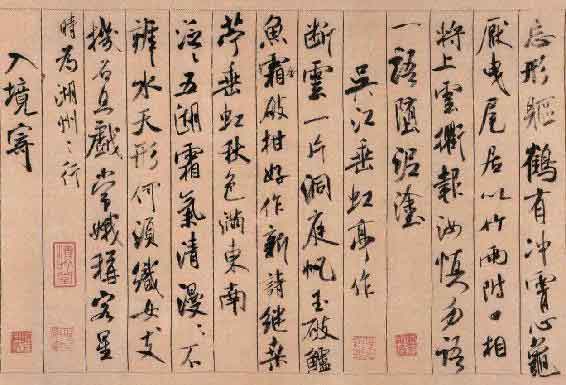 忘形軀鶴有冲霄心龜
厭曳尾居以竹兩附口相
將上雲衢報汝慎勿語
一語墮泥塗
吳江垂虹亭作
斷雲一片洞庭帆玉破鱸
魚霜破柑好作新詩繼桑
苧垂虹秋色滿東南
泛〻五湖霜氣清漫〻不
辨水天形何須織女支
機石且戲常娥稱客星
時為湖州之行
入境寄